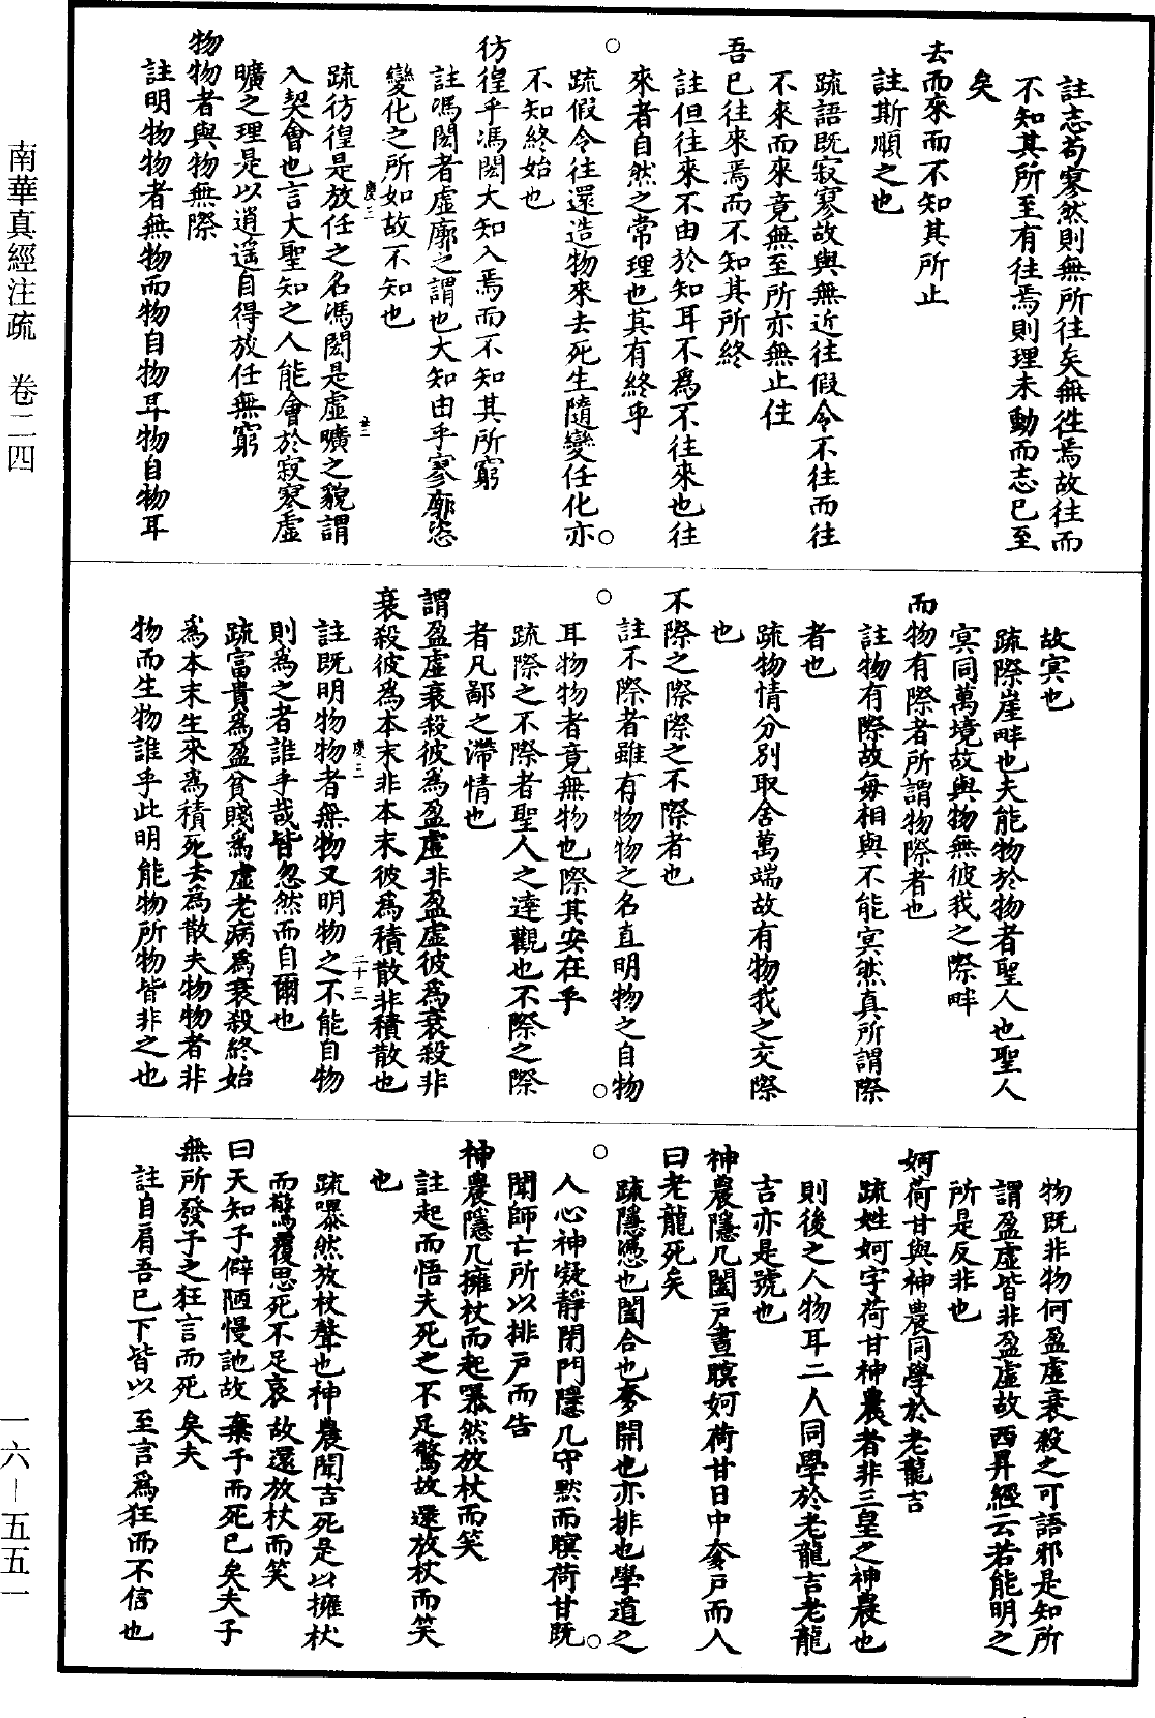 南華真經注疏　卷二四
註志苟寥然則無所往矣無往焉故往而
不知其所至有往焉則理未動而志已至
矣
去而來而不知其所止
註斯順之也
疏語既寂寥故與無近往假令不往而往
不來而來竟無至所亦無止住
吾已往來焉而不知其所終
註但往來不由於知耳不爲不往來也往
來者自然之常理也其有終乎
○
疏假令往還造物來去死生隨變任化亦
不知終始也
彷徨乎馮閎大知入焉而不知其所窮
註馮閎者虛廓之謂也大知由乎寥廓恣
變化之所如故不知也
疏彷徨是放任之名馮閎是虛曠之貌謂
入契會也言大聖知之人能會於寂寥虛
曠之理是以逍遙自得放任無窮
物物者與物無際
註明物物者無物而物自物耳物自物耳
故冥也
疏際崖畔也夫能物於物者聖人也聖人
冥同萬境故與物無彼我之際畔
而物有際者所謂物際者也
註物有際故每相與不能冥然真所謂際
者也
疏物情分別取舍萬端故有物我之交際
也
不際之際際之不際者也
註不際者雖有物物之名直明物之自物
耳物物者竟無物也際其安在乎
疏際之不際者聖人之達觀也不際之際
者凡鄙之滯情也
謂盈虛衰殺彼爲盈虛非盈虛彼爲衰殺非
衰殺彼爲本末非本末彼爲積散非積散也
註既明物物者無物又明物之不能自物
則爲之者誰乎哉皆忽然而自爾也
疏富貴爲盈貧賤爲虛老病爲衰殺終始
爲本末生來爲積死去爲散夫物物者非
物而生物誰乎此明能物所物皆非之也
物既非物何盈虛衰殺之可語邪是知所
謂盈虛皆非盈虛故西昇經云若能明之
所是反非也
妸荷甘與神農同學於老龍吉
疏姓妸字荷甘神農者非三皇之神農也
則後之人物耳二人同學於老龍吉老龍
吉亦是號也
神農隱几闔戶晝瞑妸荷甘日中奓戶而入
曰老龍死矣
疏隱憑也闔合也奓開也亦排也學道之
人心神凝靜閉門隱几守默而瞑荷甘既
聞師亡所以排戶而告
神農隱几擁杖而起曝然放杖而笑
註起而悟夫死之不足驚故還放杖而笑
也
疏曝然放杖聲也神農聞吉死是以擁杖
而驚覆思死不足哀故還放杖而笑
曰天知予僻陋慢訑故棄予而死已矣夫子
無所發予之狂言而死矣夫
註自肩吾已下皆以至言爲狂而不信也
一六—五五一